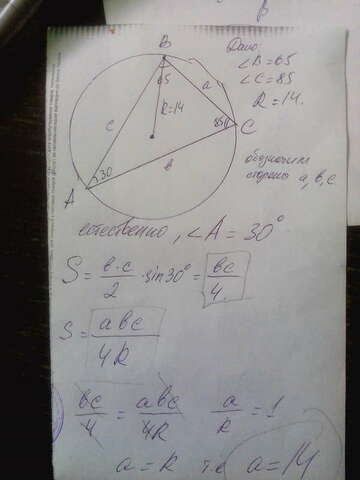 B
Дано:
∠B=65
∠C=85
R=14.
65
R=14
a
c
85
C
b
30
A
обозначим
стороны a, b, c
естественно, ∠A = 30°
S = b·c/2 · sin30° = bc/4
S = abc/4R
bc/4 = abc/4R a/R = 1
a = R т.е a = 14